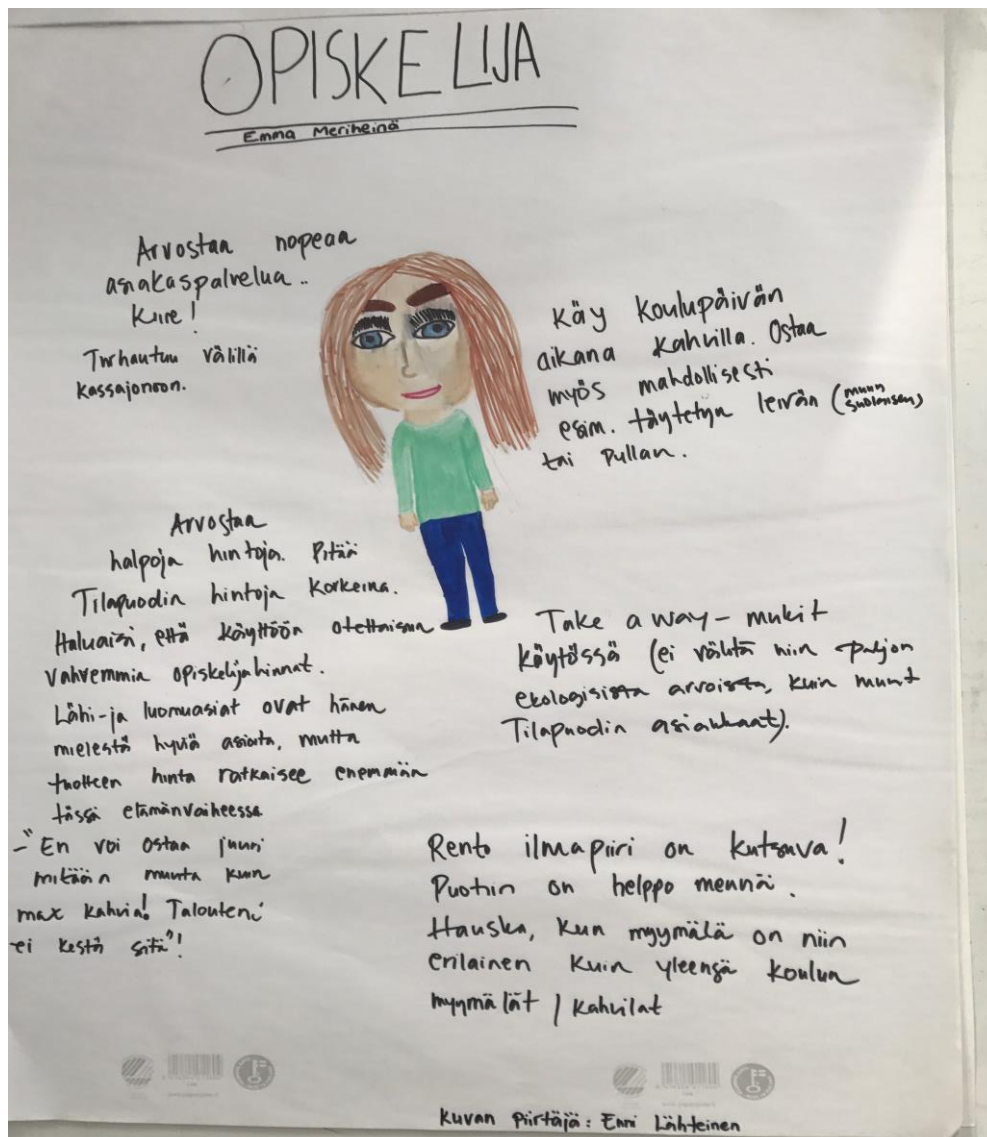 OPISKELIJA
Emma Meriheinä
Arvostaa nopeaa
asiakaspalvelua..
Kiire!
Turhautuu välillä
kassajonoon.
Käy koulupäivän
aikana kahvilla. Ostaa
myös mahdollisesti
esim. täytetyn leivän (muun suolaisen)
tai pullan.
Arvostaa
halpoja hintoja. Pitää
Tilapuodin hintoja korkeina.
Haluaisi, että käyttöön otettaisiin
vahvemmin opiskelijahinnat.
Lähi-ja luomuasiat ovat hänen
mielestä hyviä asioita, mutta
tuotteen hinta ratkaisee enemmän
tässä elämänvaiheessa.
-"En voi ostaa juuri
mitään muuta kuin
max kahvia! Talouteni
ei kestä sitä"!
Take a way-mukit
käytössä (ei välitä niin paljon
ekologisista arvoista, kuin muut
Tilapuodin asiakkaat).
Rento ilmapiiri on kutsuva!
Puotiin on helppo mennä.
Hauska, kun myymälä on niin
erilainen kuin yleensä koulun
myymälät / kahvilat
Kuvan piirtäjä: Enni Lähteinen